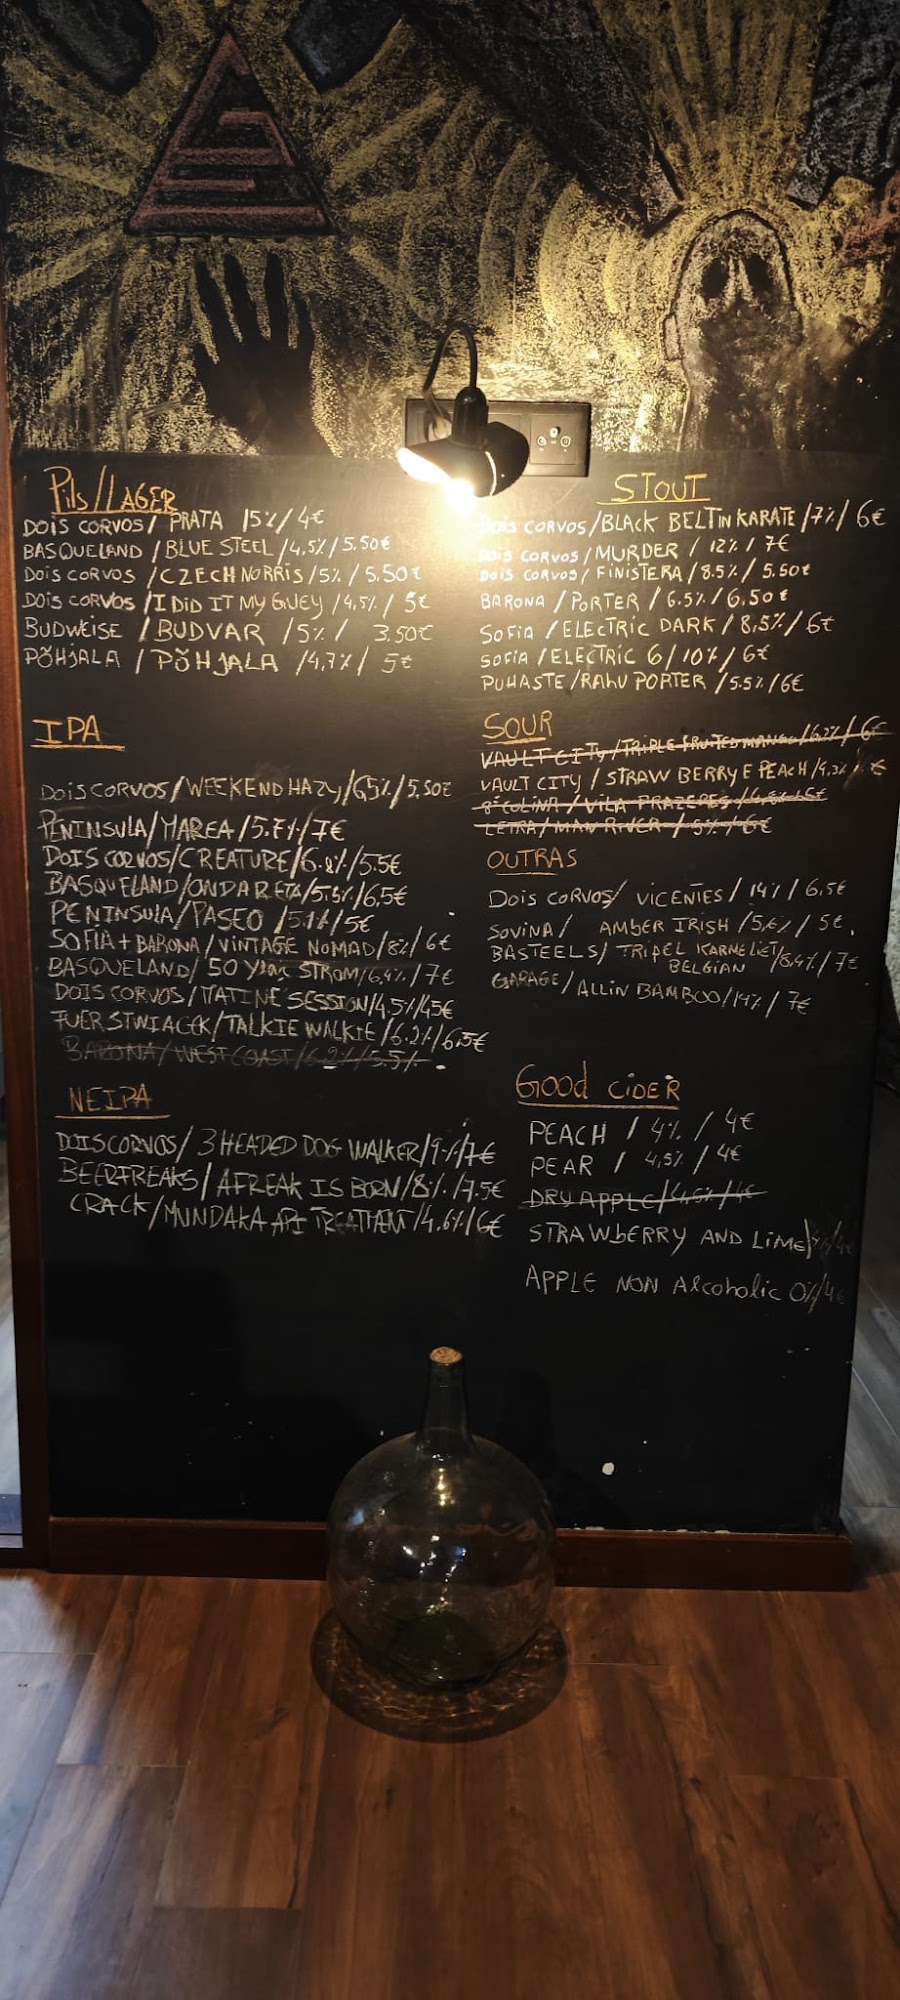 Pils/LAGER
DOIS CORVOS / PRATA /5%/ 4€
BASQUELAND / BLUE STEEL /4.5%/5.50€
DOIS CORVOS / CZECH NORRIS /5% / 5.50€
DOIS CORVOS / I DID IT MY GUEY /4,5%/ 5€
BUDWEISE / BUDVAR /5% / 3.50€
PÕHJALA / PÕHJALA /4,7% / 5€
IPA
DOIS CORVOS/WEEKEND HAZY/6,5%/5.50€
PENINSULA/MAREA /5.7%/7€
DOIS CORVOS/CREATURE/6.8%/5.5€
BASQUELAND/ONDARETA/5,5%/6,5€
PENINSULA/PASEO /5.1%/5€
SOFIA + BARONA / VINTAGE NOMAD/8%/ 6€
BASQUELAND/ 50 YEAR STROM/6,4%/7€
DOIS CORVOS/MATINÉ SESSION/4.5%/4.5€
FUERST WIACEK/TALKIE WALKIE /6.2%/6,5€
BARONA/WEST COAST/6.2%/5.5%
NEIPA
DOIS CORVOS/ 3 HEADED DOG WALKER/9%/7€
BEERFREAKS/ A FREAK IS BORN/8%/7.5€
CRACK/MUNDAKA /4.6%/6€
STOUT
DOIS CORVOS/BLACK BELT IN KARATE /7%/ 6€
DOIS CORVOS/MURDER / 12% / 7€
DOIS CORVOS/ FINISTERA /8.5%/ 5.50€
BARONA /PORTER / 6.5%/6,50€
SOFIA /ELECTRIC DARK / 8,5%/ 6€
SOFIA / ELECTRIC 6/10%/6€
PUHASTE/RAHU PORTER /5.5%/6€
SOUR
VAULT CITY/TRIPLE FRUITED MANGO/6,2%/ 6€
VAULT CITY / STRAWBERRY E PEACH /4,3% / €
8ª COLINA / VILA PRAZERES / 6€
LETRA/MAN RIVER / 5%/6€
OUTRAS
DOIS CORVOS/ VICENTES / 14% / 6,5€
SOVINA / AMBER IRISH /5,6% / 5€.
BASTEELS/ TRIPEL KARMELIET/8,4%/ 7€
BELGIAN
GARAGE/ALL IN BAMBOO/14% / 7€
Good CIDER
PEACH / 4% / 4€
PEAR / 4,5% / 4€
DRY APPLE/4,5%/4€
STRAWBERRY AND LIME/4%/4€
APPLE NON Alcoholic 0%/4€